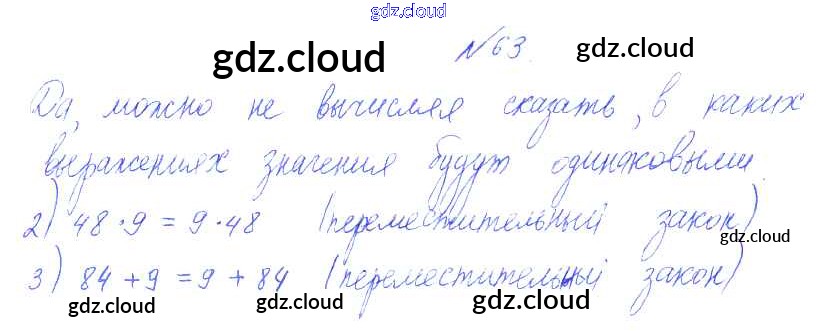 gdz.cloud
№63.
gdz.cloud gdz.cloud
Да, можно не вычисляя сказать, в каких
выражениях значения будут одинаковыми.
2) 48·9 = 9·48 (переместительный закон)
gdz.cloud
3) 84+9 = 9+84 (переместительный закон)
gdz.cloud gdz.cloud gdz.cloud gdz.cloud